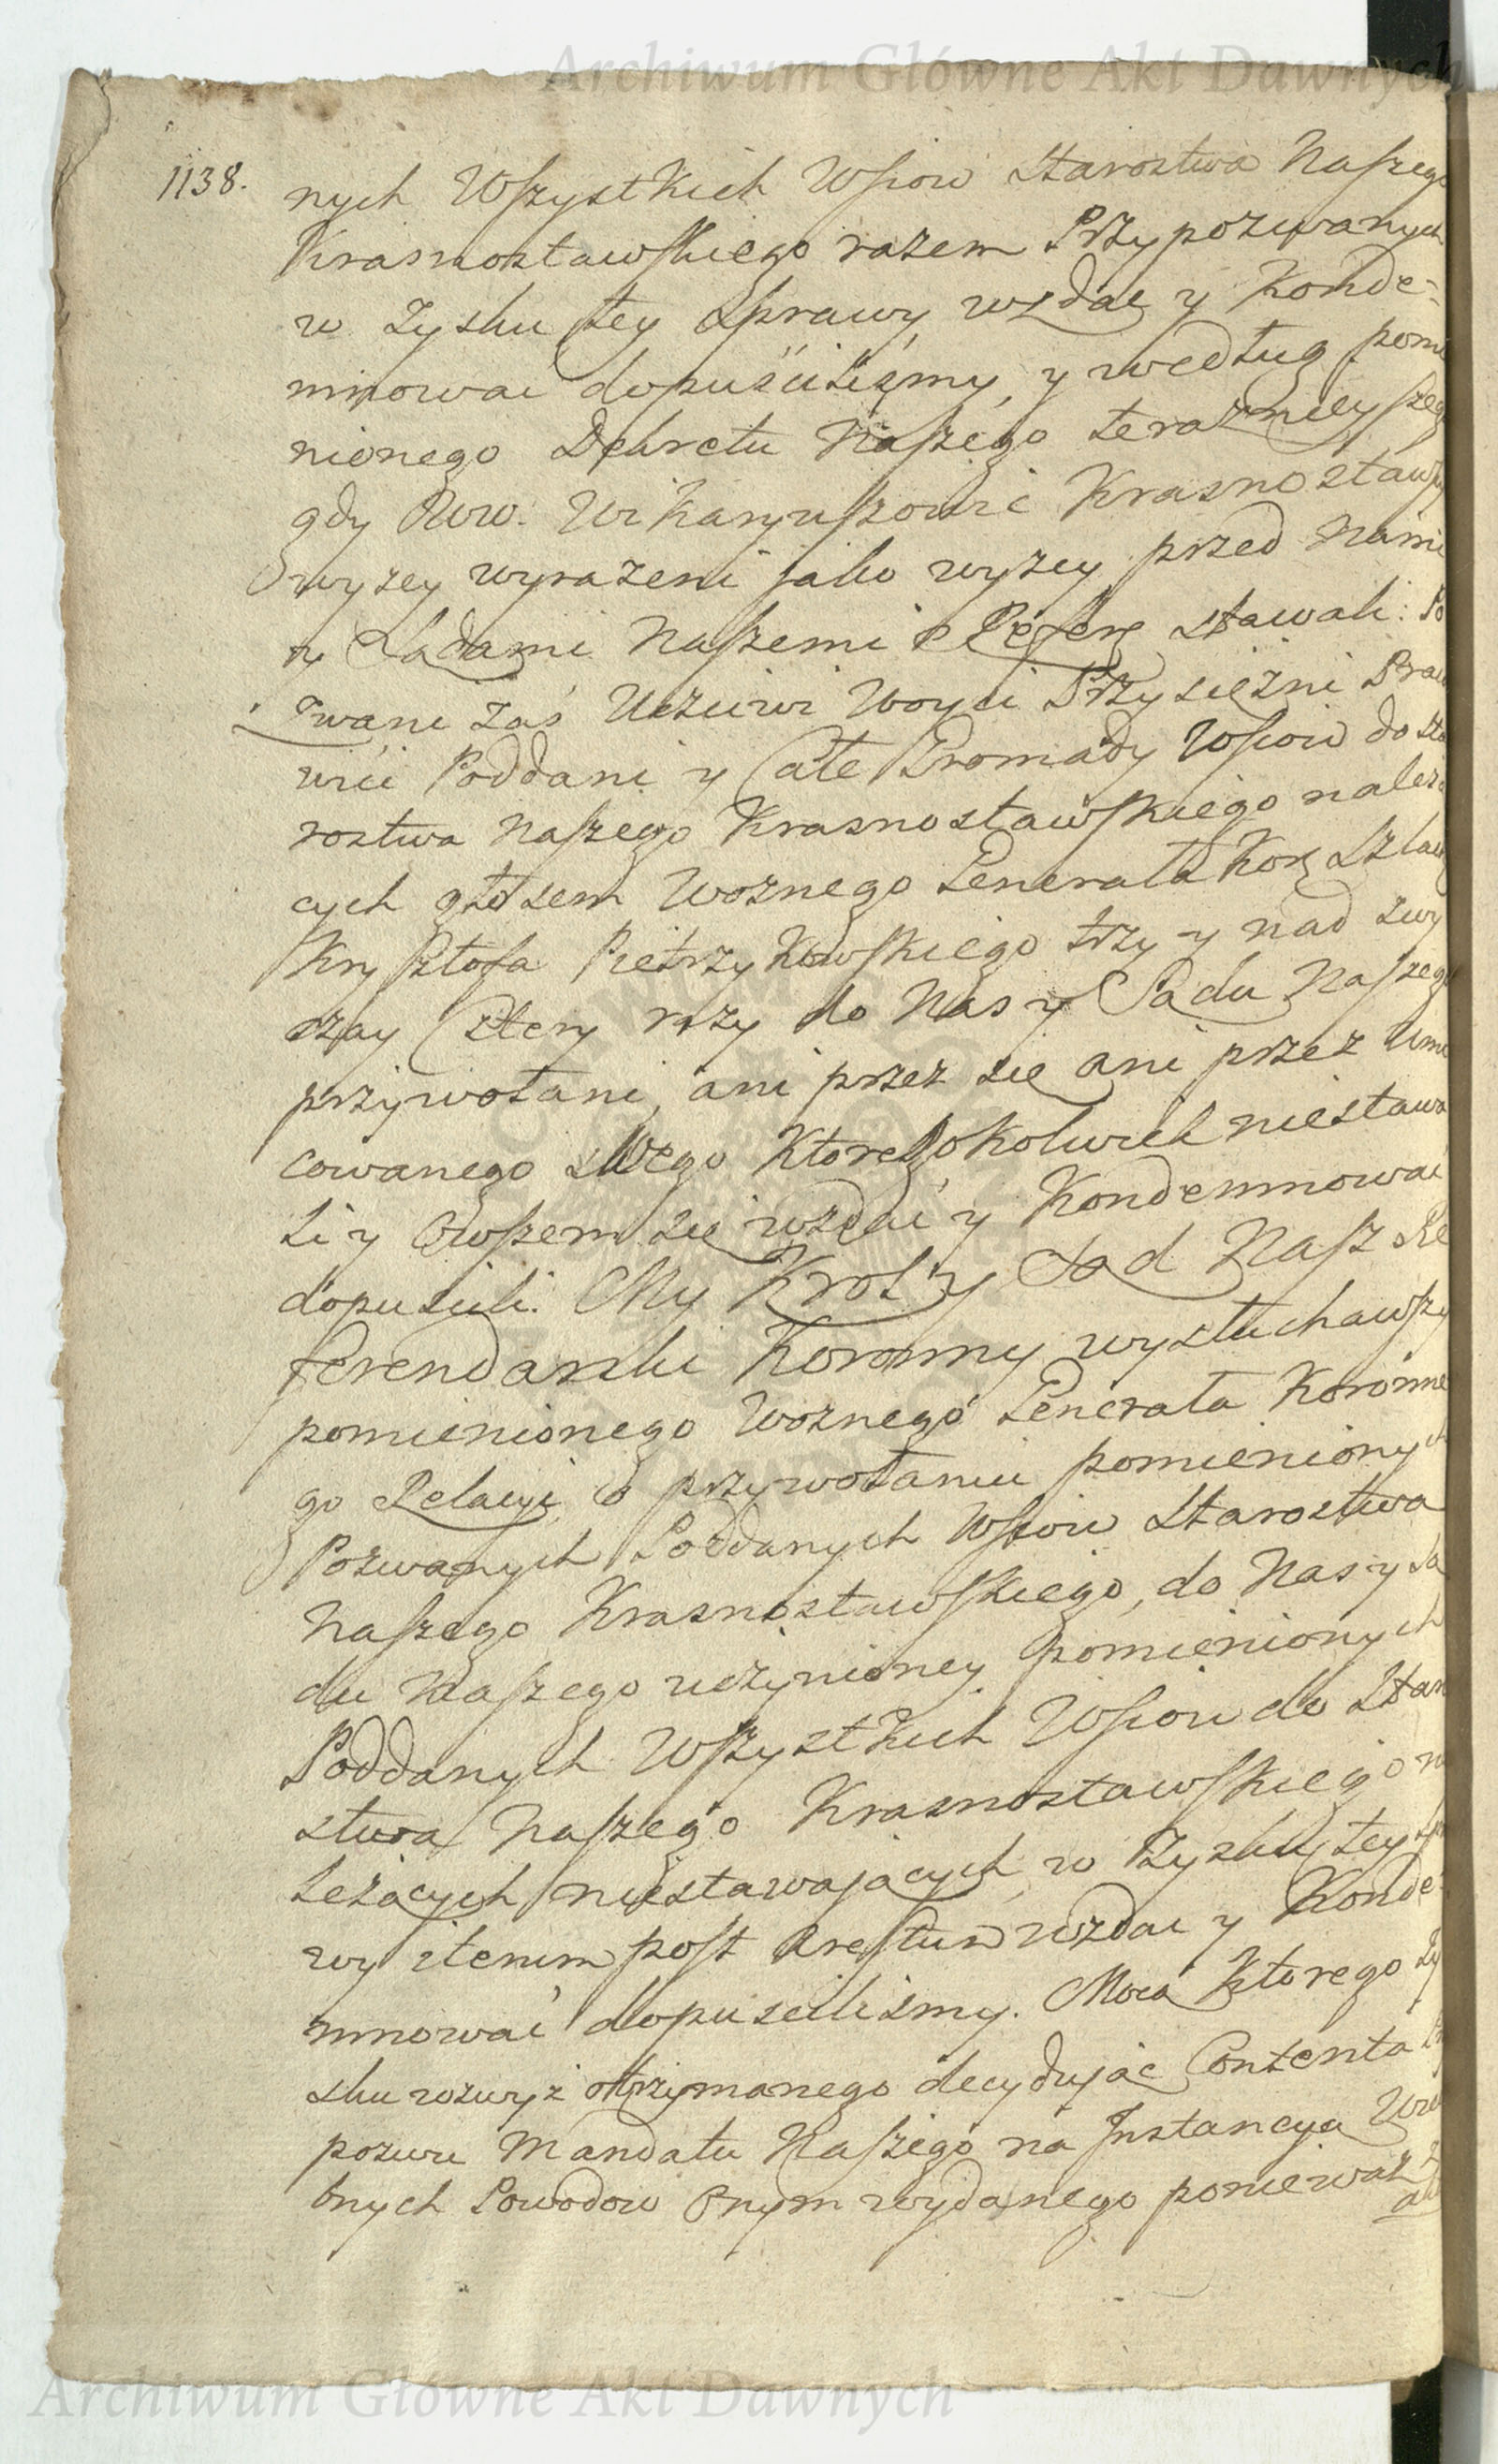 Archiwum Główne Akt Dawnych
1138.
nych Wszystkich Wsiow Starostwa Naszego
Krasnostawskiego razem Przypozwanych
w Zysku tey Sprawy wzdac y Konde-
mnowac dopuściliśmy, y według pomie
nionego Dekretu Naszego teraznieyszego
gdy Ww. Wikaryuszowie Krasnostawscy
wyzey wyrazeni jako wyzey przed Nami
y Sądami Naszemi Referę stawali: Po
zwani zaś Uczciwi Woyci Przysiężni Praco
wici Poddani y Całe Gromady Wsiow do Sta
rostwa Naszego Krasnostawskiego należą
cych głosem Woznego Generała Kor. Szlach
Krysztofa Pietrzykowskiego trzy y nad zwy
czay cztery rozy do Nas y Sądu Naszego
przywołani, ani przez się ani przez Umo
cowanego swego ktoregokolwiek niestawa
li y owszem się wzdać y Kondemnować
dopuścili. My Krol y Sąd Nasz Re
ferendarski Koronny wysłuchawszy
pomienionego Woznego Generała Koronne
go Relacyi o przywołaniu pomienionych
Pozwanych Poddanych Wsiow Starostwa
Naszego Krasnostawskiego, do Nas y Są
du Naszego uczynioney pomienionych
Poddanych Wszystkich Wsiow do Staro
stwa Naszego Krasnostawskiego na
leżących niestawających w Zysku tey Spra
wy iterum post Arestum wzdac y Konde-
mnować dopuściliśmy. Mocą Ktorego Zy
sku wzwyż otrzymanego decydując Contenta
pozwu Mandatu Naszego na Instancyą
bnych Powodow onym wydanego ponieważ
Archiwum Główne Akt Dawnych